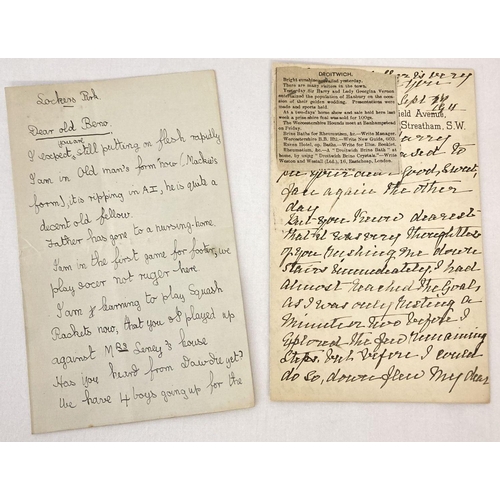 Lockers Prk
Dear old Beno.
I expect, you are still putting on flesh rapidly
I am in Old man's form now (Mackie's
form), it is ripping in A1, he is quite a
decent old fellow.
Father has gone to a nursing-home.
I am in the first game for footer, we
play socer not ruger here
I am learning to play Squash
Rackets now, that you & I played up
against MRS Leney's house
Has you heard from Dawdre yet?
We have 4 boys going up for the
DROITWICH.
Bright sunshine prevailed yesterday.
There are many visitors in the town.
Yesterday Sir Harry and Lady Georgina Vernon
entertained the population of Hanbury on the occasion
of their golden wedding. Presentations were
made and sports held
At a two-days' horse show and sale held here last
week a prize shire foal was sold for 100gs.
The Worcestershire Hounds meet at
on Friday.
Brine Baths for Rheumatism, &c.—Write Manager.
Worcestershire B.B. Htl—Write New Guide, 603.
Raven Hotel, op. Baths.—Write for Illus. Booklet.
Rheumatism, &c.—A "Droitwich Brine Bath" at
home, by using "Droitwich Brine Crystals." Write
Weston and Westall (Ltd.), 16, Eastcheap, London.
very
Sept
1911
field Avenue,
Streatham, S.W.
to
your own good, sweet
again the other
day
But you know dearest
that it was very thoughtless
of you pushing me down
stairs immediately I had
almost reached the Goal,
as I was only resting a
Minute or Two before I
explored the few remaining
steps. but before I could
do so, down flew My dear